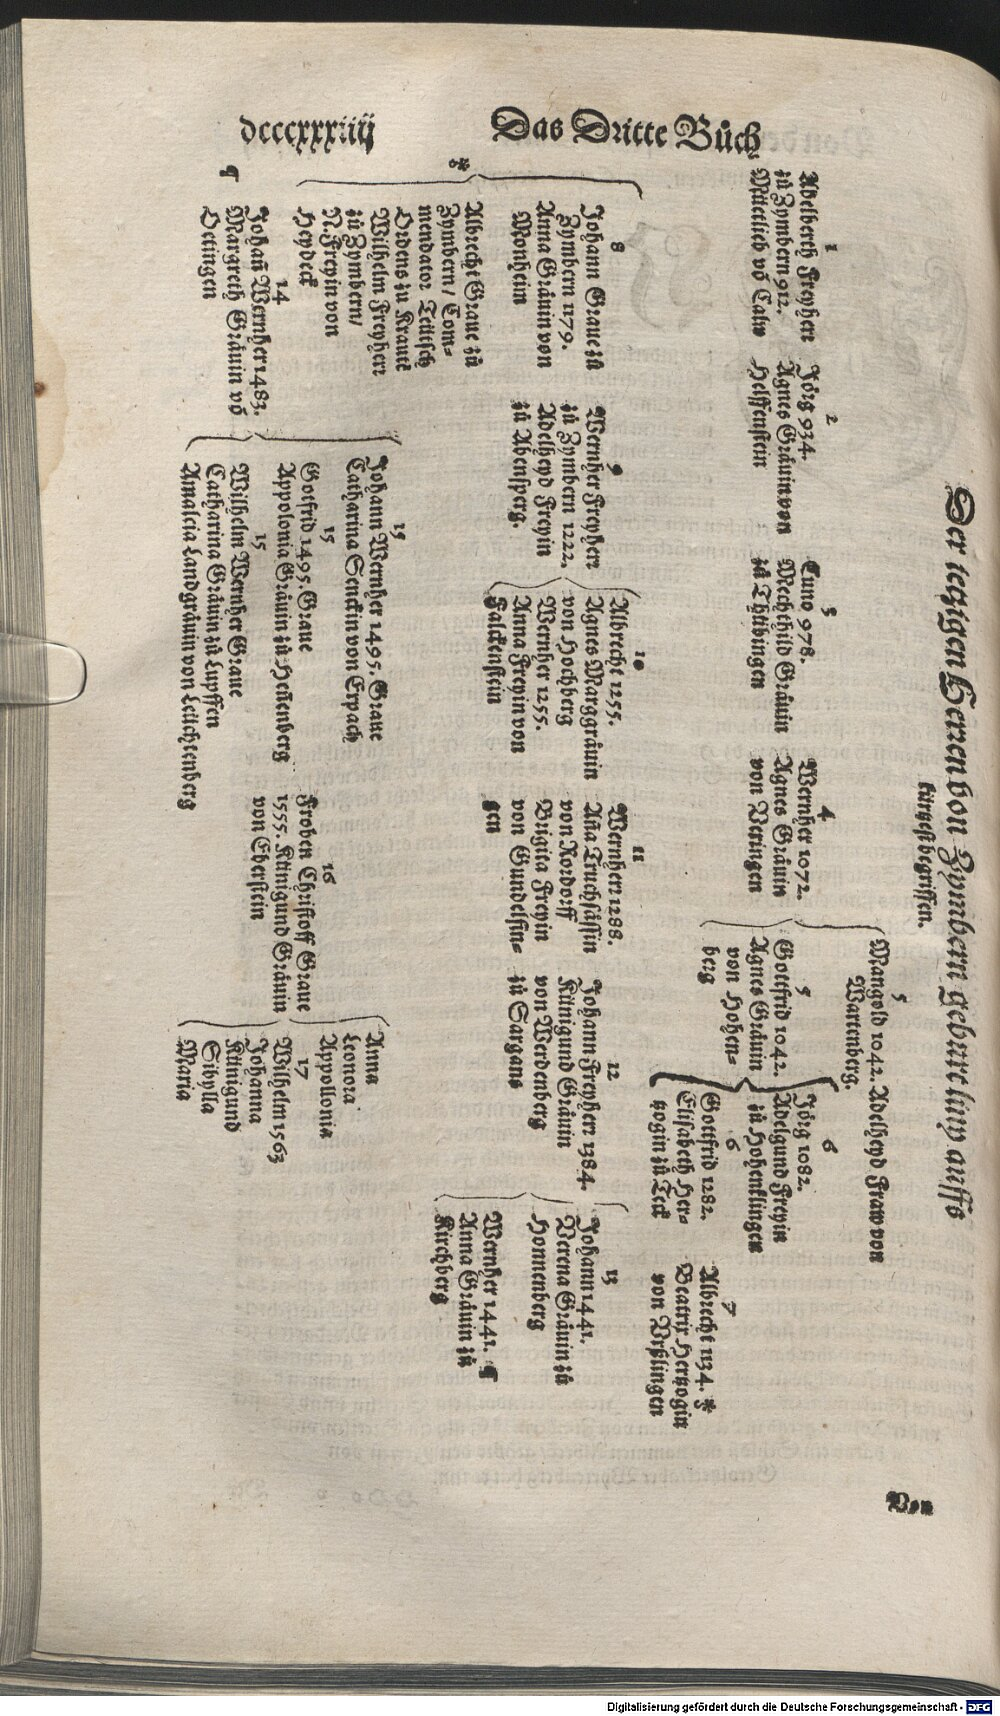 dcccxxxiiij
Das Dritte Bůch
Der ietzigen Herren von Zymbern geburt liny auffs
kürtzest begriffen.
1
Adelberth Freyherr
zů Zymbern 912.
Müttlieb võ Calw
2
Jörg 934.
Agnes Gräuin von
Helffenstein
3
Cuno 978.
Mechthild Gräuin
zů Thübingen
4
Wernher 1072.
Agnes Gräuin
von Veringen
5
Mangold 1042. Adelheyd Fraw von
Wartenberg.
5
Gottfrid 1042.
Agnes Gräuin
von Hohen-
berg
6
Jörg 1082.
Adelgund Freyin
zů Hohenklingen
6
Gottfrid 1282.
Elisabeth Her-
tzogin zů Teck
7
Albrecht 1134. *
Beatrix Hertzogin
von Vrßlingen
*
8
Johann Graue zů
Zymbern 1179.
Anna Gräuin von
Monheim
Albrecht Graue zů
Zymbern / Com-
mendator Teütsch
Ordens zů Krautk
Wilhelm Freyherr
zů Zymbern /
N. Freyin von
Heydeck
9
Wernher Freyherr
zů Zymbern 1222.
Adelheyd Freyin
zů Abensperg
10
Albrecht 1255.
Agnes Marggräuin
von Hochberg
Wernher 1255.
Anna Freyin von
Falckenstein
11
Wernher 1288.
Aña Truchsässin
von Rordorff
Brigita Freyin
von Gundelfin-
gen
12
Johann Freyherr 1384.
Künigund Gräuin
von Werdenberg
zů Sargans
13
Johann 1441.
Verena Gräuin zů
Honnenberg
Wernher 1441. ¶
Anna Gräuin zů
Kirchberg
¶
14
Johañ Wernher 1483.
Margreth Gräuin võ
Oetingen
15
Johann Wernher 1495. Graue
Catharina Senckin von Erpach
15
Gotfrid 1495. Graue
Appolonia Gräuin zů Heñenberg
15
Wilhelm Wernher Graue
Catharina Gräuin zů Lupffen
Amaleia Landgräuin von Leüchtenberg
16
Froben Christoff Graue
1555. Künigund Gräuin
von Eberstein
Anna
Leonora
Appollonia
17
Wilhelm 1563
Johanna
Künigund
Sibylla
Maria
Von
Digitalisierung gefördert durch die Deutsche Forschungsgemeinschaft - DFG